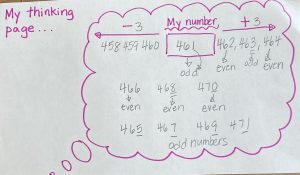 My thinking
page...
- 3 My number + 3
458 459 460 461 462, 463, 464
odd even odd even
466 468 470
even even even
465 467 469 471
odd numbers